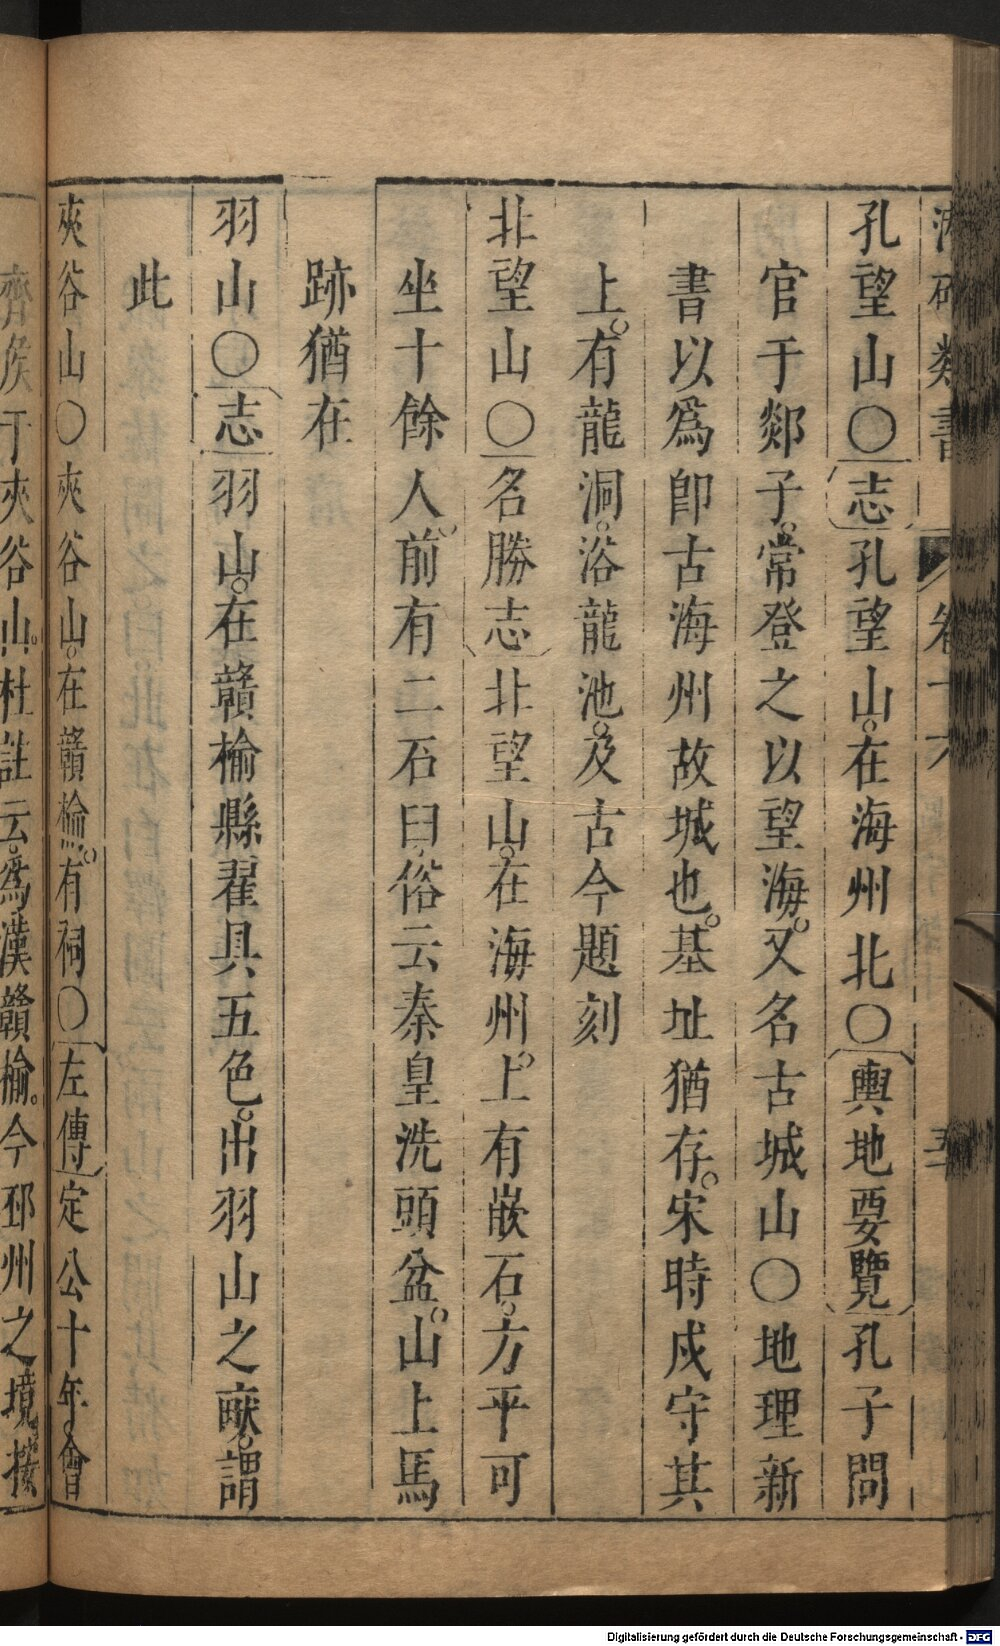 類書 卷十六
孔望山○志孔望山。在海州北○輿地要覽孔子問
官于郯子。常登之以望海。又名古城山○地理新
書以為卽古海州故城也。基址猶存。宋時戍守其
上。有龍洞。浴龍池。及古今題刻
北望山○名勝志北望山。在海州。上有嵌石。方平可
坐十餘人。前有二石臼。俗云秦皇洗頭盆。山上馬
跡猶在
羽山○志羽山。在贛榆縣翟具五色。出羽山之畎。謂
此
夾谷山○夾谷山。在贛榆。有祠○左傳定公十年。會
齊侯于夾谷山。杜註云。為漢贛榆。今邳州之境。按
Digitalisierung gefördert durch die Deutsche Forschungsgemeinschaft - DFG